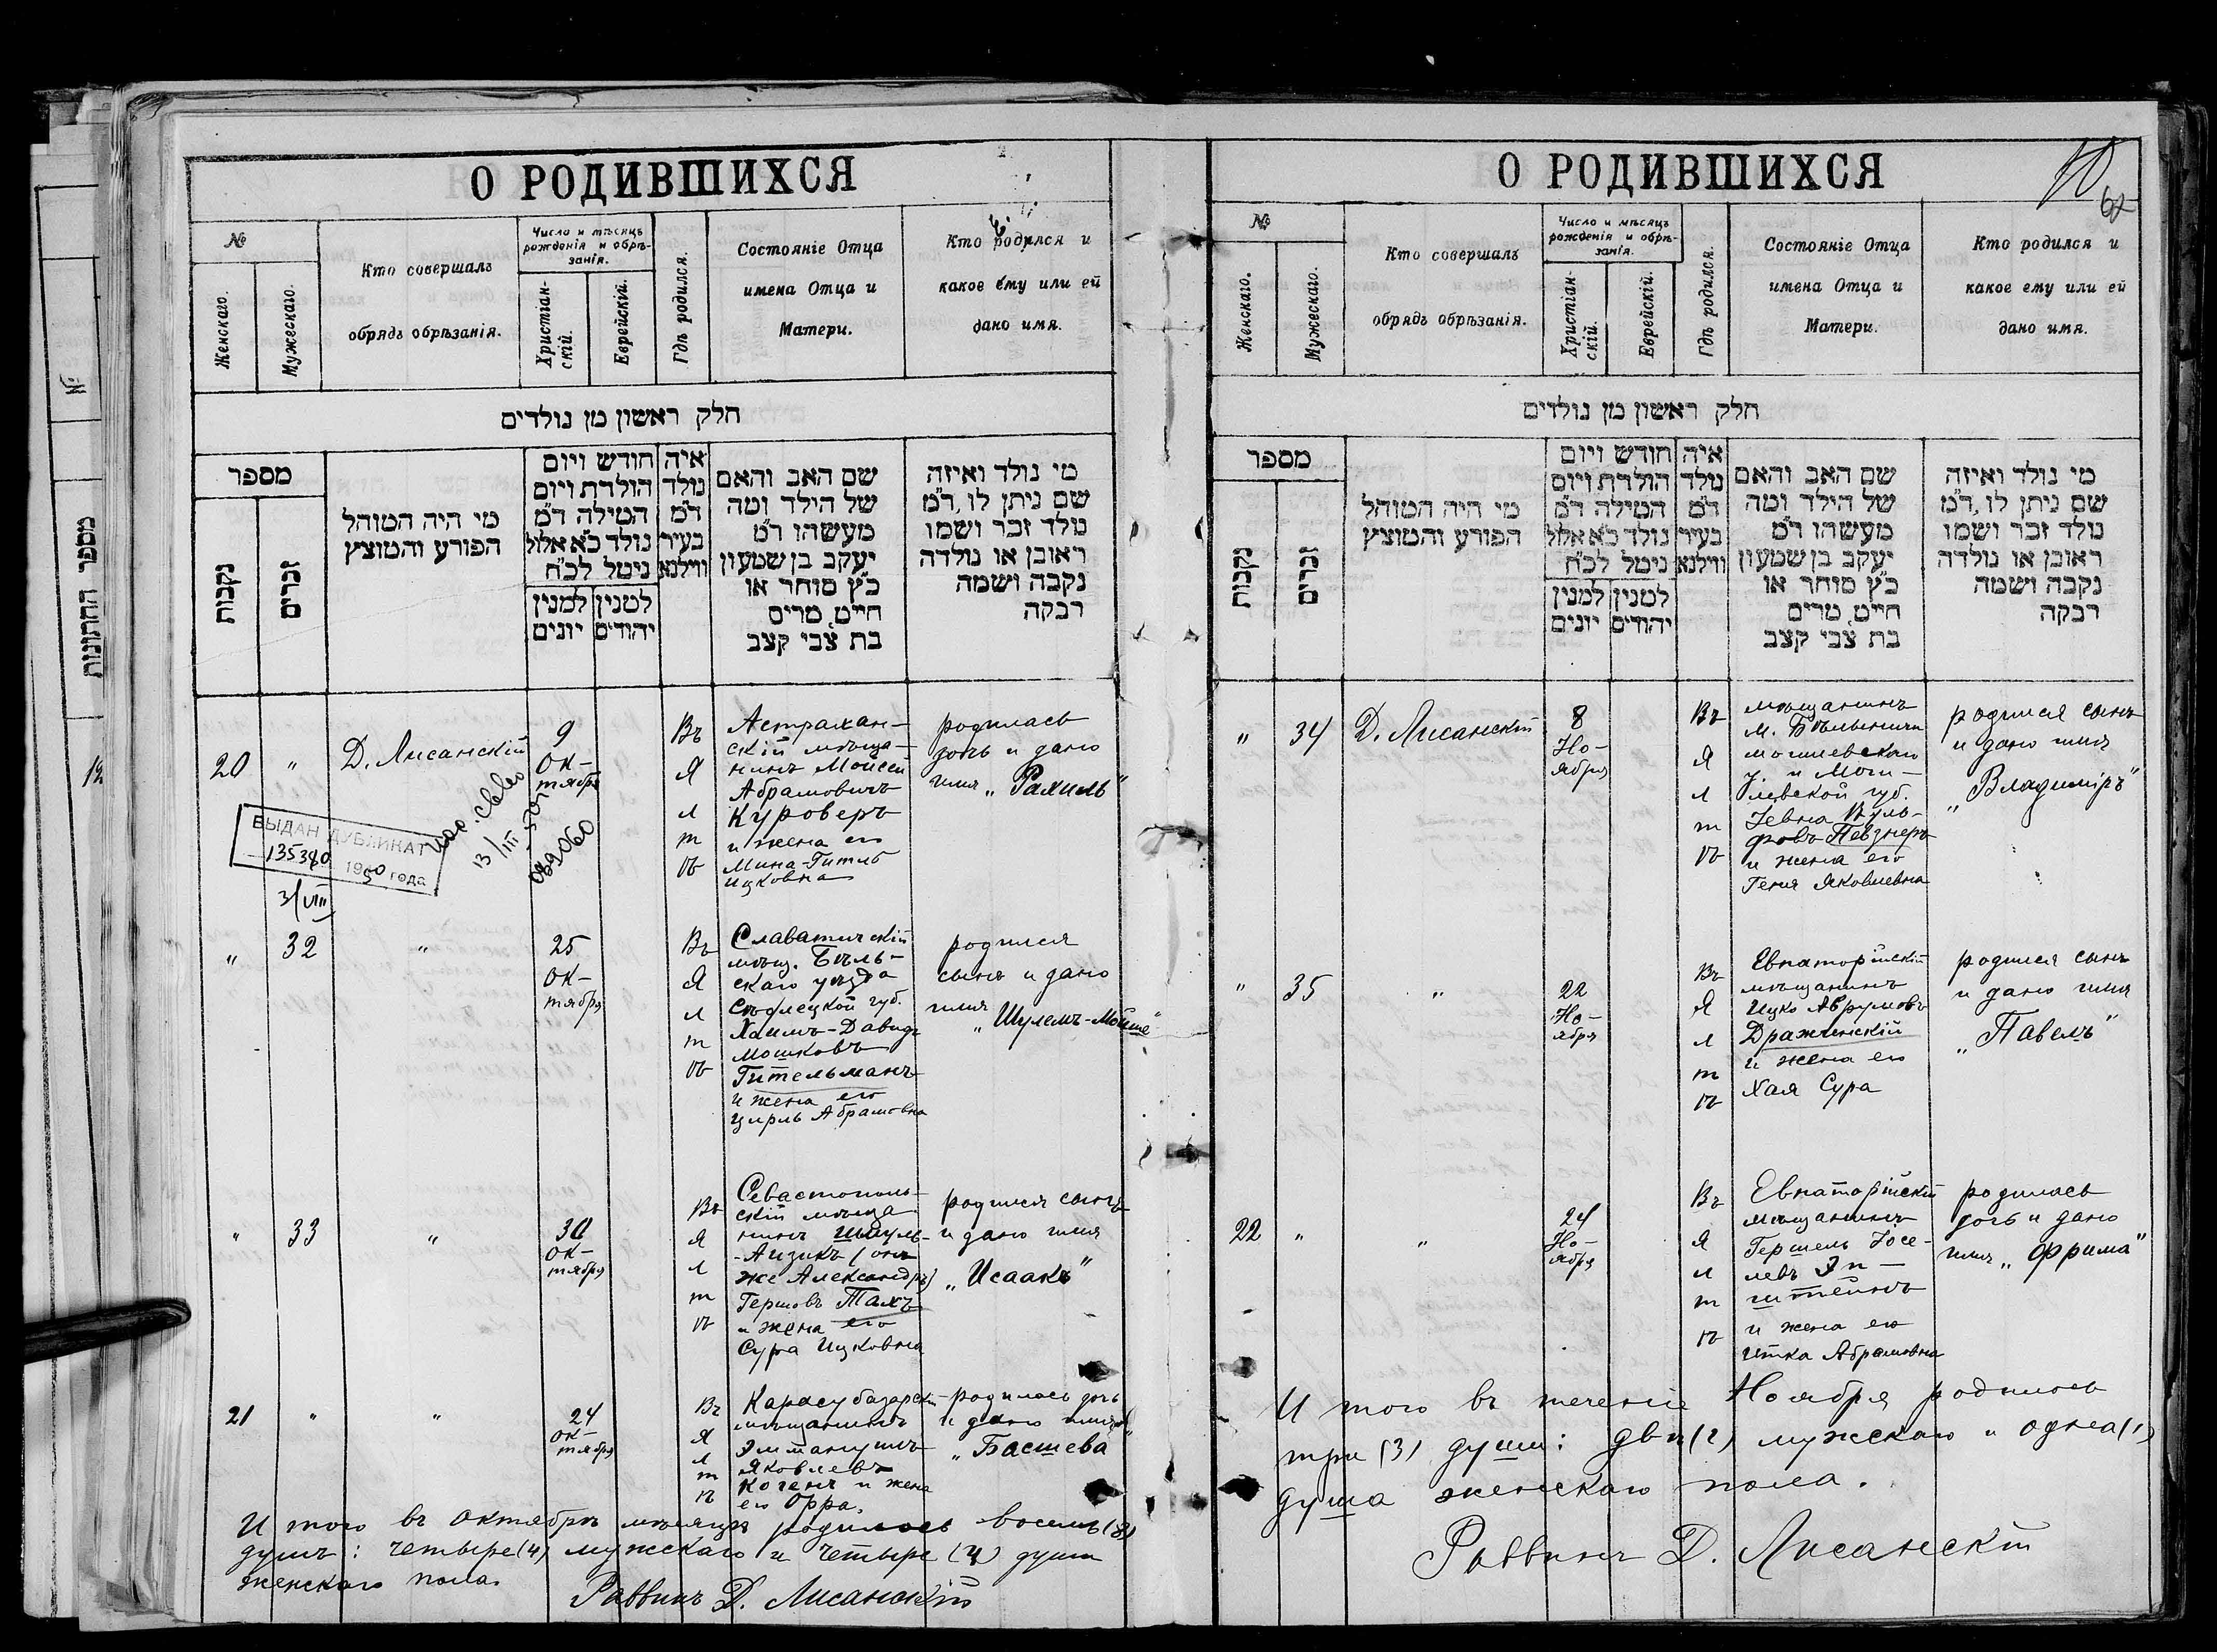 О РОДИВШИХСЯ
№
Женскаго.
Мужескаго.
Кто совершалъ
обрядъ обрѣзанія.
Число и мѣсяцъ
рожденія и обрѣ-
занія.
Христіан-
скій.
Еврейскій.
Гдѣ родился.
Состояніе Отца
имена Отца и
Матери.
Кто родился и
какое ему или ей
дано имя.
חלק ראשון מן נולדים
מספר
נקבות
זכרים
מי היה המוהל
הפורע והמוצץ
חודש ויום
הולדת ויום
המילה ד"מ
נולד כ"א אלול
ניטל לכ"ח
למנין
יונים
למנין
יהודים
איה
נולד
ד"מ
בעיר
ווילנא
שם האב והאם
של הילד ומה
מעשהו ד"מ
יעקב בן שמעון
כ"ץ סוחר או
חייט, מרים
בת צבי קצב
מי נולד ואיזה
שם ניתן לו, ד"מ
נולד זכר ושמו
ראובן או נולדה
נקבה ושמה
רבקה
20 " Д. Лисанскій
9
ок-
тября
Въ
Я
л
т
ѣ
Астрахан-
скій мѣща-
нинъ Мойсей
Абрамовичъ
Куроверъ
и жена его
Мина-Гитль
Ицковна
родилась
дочь и дано
имя „Рахиль"
ВЫДАН ДУБЛИКАТ
135380
1950 года
3/VIII
13/III
" 32 "
25
ок-
тября
Въ
Я
л
т
ѣ
Славатичскій
мѣщ. Бѣль-
скаго уѣзда
Сѣдлецкой губ.
Хаимъ-Давидъ
Мошковъ
Гительманъ
и жена его
Цирль Абрамовна
родился
сынъ и дано
имя
„Шулемъ-Мойше"
" 33 "
30
ок-
тября
Въ
Я
л
т
ѣ
Севастополь-
скій мѣща-
нинъ Шмуль-
-Айзикъ (онъ
же Александръ)
Гершовъ Тахъ
и жена его
Сура Ицковна
родился сынъ
и дано имя
„Исаакъ"
21 " "
24
ок-
тября
Въ
Я
л
т
ѣ
Карасубазарскій
мѣщанинъ
Эммануилъ
Яковлевъ
Когенъ и жена
его Орра.
родилась дочь
и дано имя
„Басшева"
И того въ октябрѣ мѣсяцѣ родилось восемь (8)
душъ: четыре (4) мужскаго и четыре (4) души
женскаго пола.
Раввинъ Д. Лисанскій
О РОДИВШИХСЯ
10
62
№
Женскаго.
Мужескаго.
Кто совершалъ
обрядъ обрѣзанія.
Число и мѣсяцъ
рожденія и обрѣ-
занія.
Христіан-
скій.
Еврейскій.
Гдѣ родился.
Состояніе Отца
имена Отца и
Матери.
Кто родился и
какое ему или ей
дано имя.
חלק ראשון מן נולדים
מספר
נקבות
זכרים
מי היה המוהל
הפורע והמוצץ
חודש ויום
הולדת ויום
המילה ד"מ
נולד כ"א אלול
ניטל לכ"ח
למנין
יונים
למנין
יהודים
איה
נולד
ד"מ
בעיר
ווילנא
שם האב והאם
של הילד ומה
מעשהו ד"מ
יעקב בן שמעון
כ"ץ סוחר או
חייט, מרים
בת צבי קצב
מי נולד ואיזה
שם ניתן לו, ד"מ
נולד זכר ושמו
ראובן או נולדה
נקבה ושמה
רבקה
" 34 Д. Лисанскій
8
Но-
ября
Въ
Я
л
т
ѣ
мѣщанинъ
м. Бѣлыничи
могилевскаго
у. и Моги-
левской губ.
Іевна Вуль-
фовъ Певзнеръ
и жена его
Геня Яковлевна
родился сынъ
и дано имя
„Владиміръ"
" 35 "
22
Но-
ября
Въ
Я
л
т
ѣ
Евпаторійскій
мѣщанинъ
Ицко Аврумовъ
Дражнинскій
и жена его
Хая Сура
родился сынъ
и дано имя
„Павелъ"
22 " "
24
Но-
ября
Въ
Я
л
т
ѣ
Евпаторійскій
мѣщанинъ
Гершель Іосе-
левъ Эп-
штейнъ
и жена его
Итка Абрамовна
родилась
дочь и дано
имя „Фрима"
И того въ теченіе Ноября родилось
три (3) души: двѣ (2) мужскаго и одна (1)
душа женскаго пола.
Раввинъ Д. Лисанскій
№
מספר החתונות
12